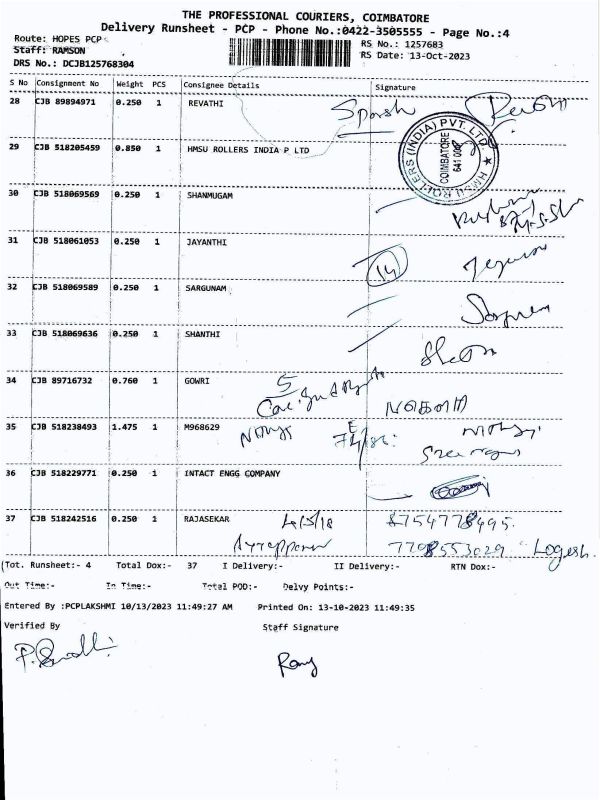 THE PROFESSIONAL COURIERS, COIMBATORE
Delivery Runsheet - PCP - Phone No.:0422-3505555 - Page No.:4
Route: HOPES PCP
Staff: RAMSON
DRS No.: DCJB125768304
RS No.: 1257683
RS Date: 13-Oct-2023
S No Consignment No Weight PCS Consignee Details Signature
28 CJB 89894971 0.250 1 REVATHI
29 CJB 518205459 0.850 1 HMSU ROLLERS INDIA P LTD
HMSU ROLLERS (INDIA) PVT. LTD. ★
COIMBATORE
641 006
30 CJB 518069569 0.250 1 SHANMUGAM
31 CJB 518061053 0.250 1 JAYANTHI
14
32 CJB 518069589 0.250 1 SARGUNAM
33 CJB 518069636 0.250 1 SHANTHI
34 CJB 89716732 0.760 1 GOWRI
5
35 CJB 518238493 1.475 1 M968629
36 CJB 518229771 0.250 1 INTACT ENGG COMPANY
37 CJB 518242516 0.250 1 RAJASEKAR 4/5/18 8754778495.
7708553029 Logesh.
Tot. Runsheet:- 4 Total Dox:- 37 I Delivery:- II Delivery:- RTN Dox:-
Out Time:- In Time:- Total POD:- Delvy Points:-
Entered By :PCPLAKSHMI 10/13/2023 11:49:27 AM Printed On: 13-10-2023 11:49:35
Verified By Staff Signature